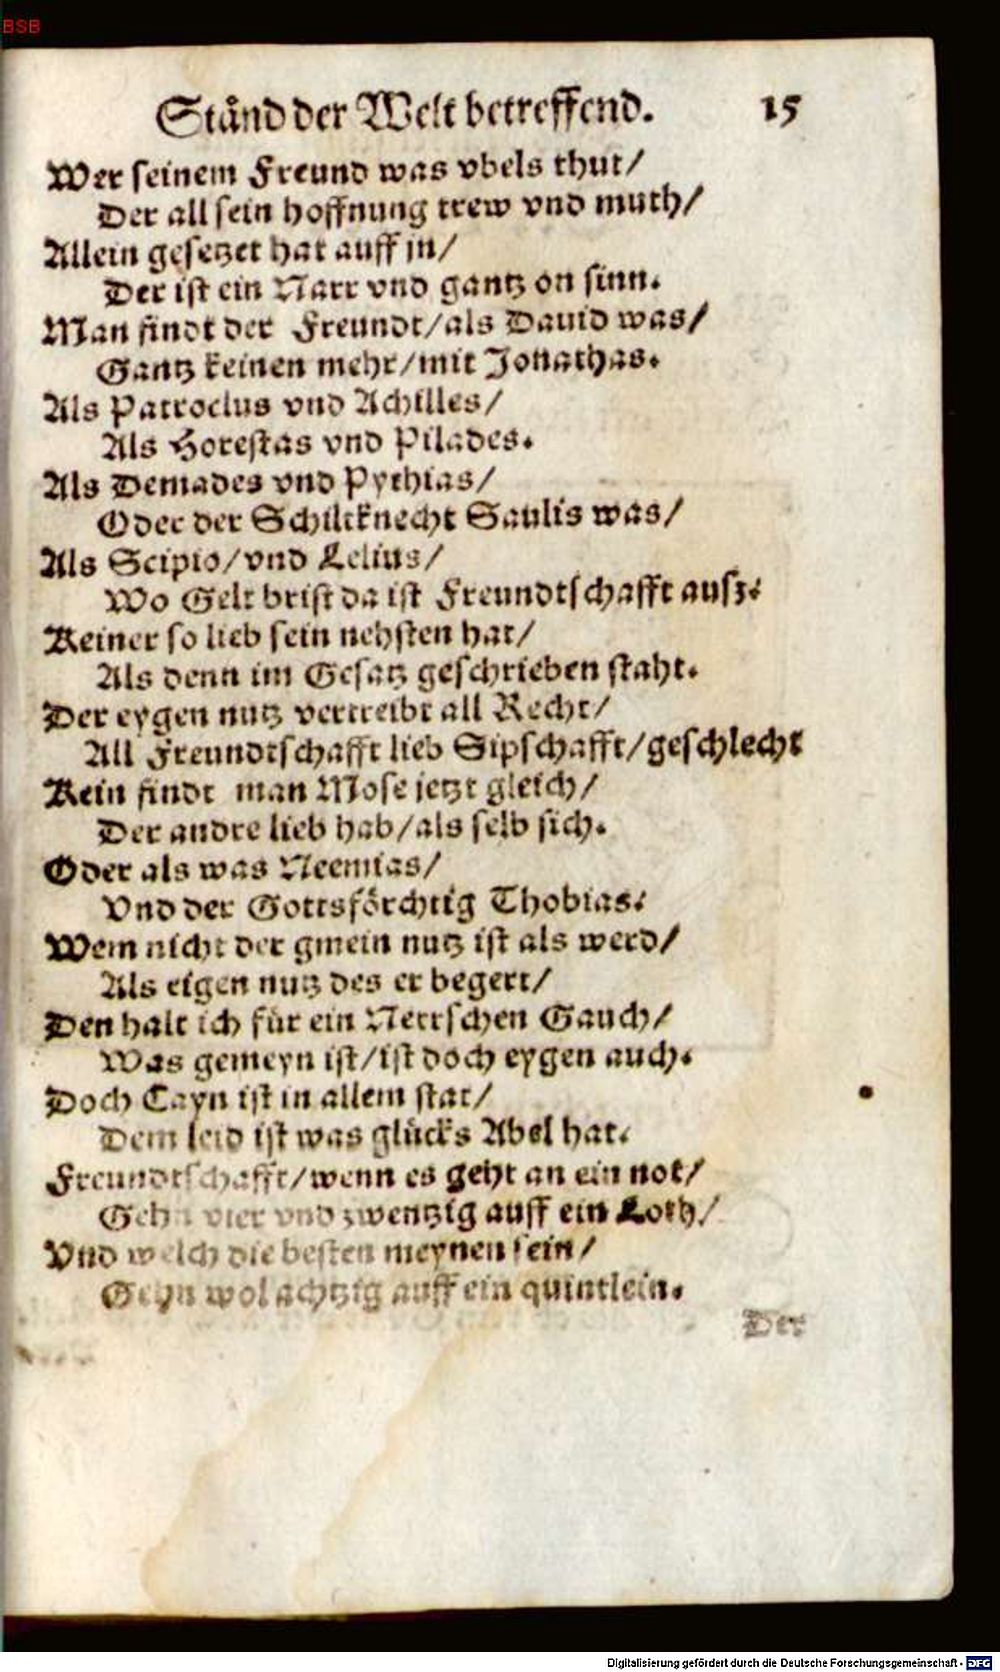 BSB
Stånd der Welt betreffend. 15
Wer seinem Freund was vbels thut/
Der all sein hoffnung trew vnd muth/
Allein gesetzet hat auff jn/
Der ist ein Narr vnd gantz on sinn.
Man findt der Freundt/als Dauid was/
Gantz keinen mehr/mit Jonathas.
Als Patroclus vnd Achilles/
Als Horestas vnd Pilades.
Als Demades vnd Pythias/
Oder der Schiltknecht Saulis was/
Als Scipio/vnd Lelius/
Wo Gelt brist da ist Freundtschafft ausz.
Keiner so lieb sein nehsten hat/
Als denn im Gesatz geschrieben staht.
Der eygen nutz vertreibt all Recht/
All Freundtschafft lieb Sipschafft/geschlecht
Kein findt man Mose jetzt gleich/
Der andre lieb hab/als selb sich.
Oder als was Neemias/
Vnd der Gottsförchtig Thobias.
Wem nicht der gmein nutz ist als werd/
Als eigen nutz des er begert/
Den halt ich für ein Nerrschen Gauch/
Was gemeyn ist/ist doch eygen auch.
Doch Cayn ist in allem stat/
Dem leid ist was glücks Abel hat.
Freundtschafft/wenn es geht an ein not/
Gehn vier vnd zwentzig auff ein Loth/
Vnd welch die besten meynen sein/
Gehn wol achtzig auff ein quintlein.
Der
Digitalisierung gefördert durch die Deutsche Forschungsgemeinschaft - DFG